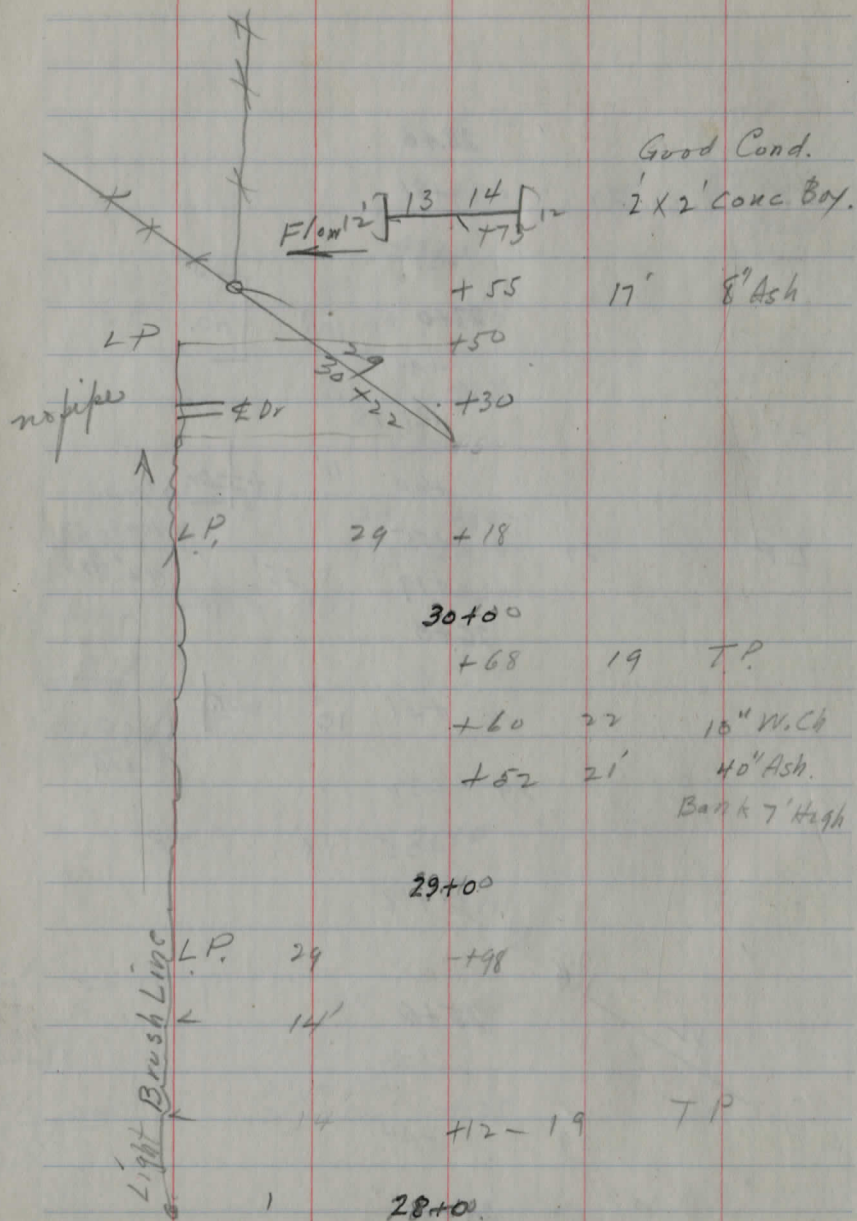 Good Cond.
12' 13 14 12 2' x 2' Conc. Box.
Flow +75
+55 17' 8" Ash
LP +50
29
30 x 22
no pipe ℄ Dr +30
L.P. 29 +18
30+00
+68 19 T.P.
+60 22 10" W.Ch
+52 21' 40" Ash.
Bank 7' High
29+00
L.P. 29 +98
14'
14 +12 - 19 TP
Light Brush Line
28+00